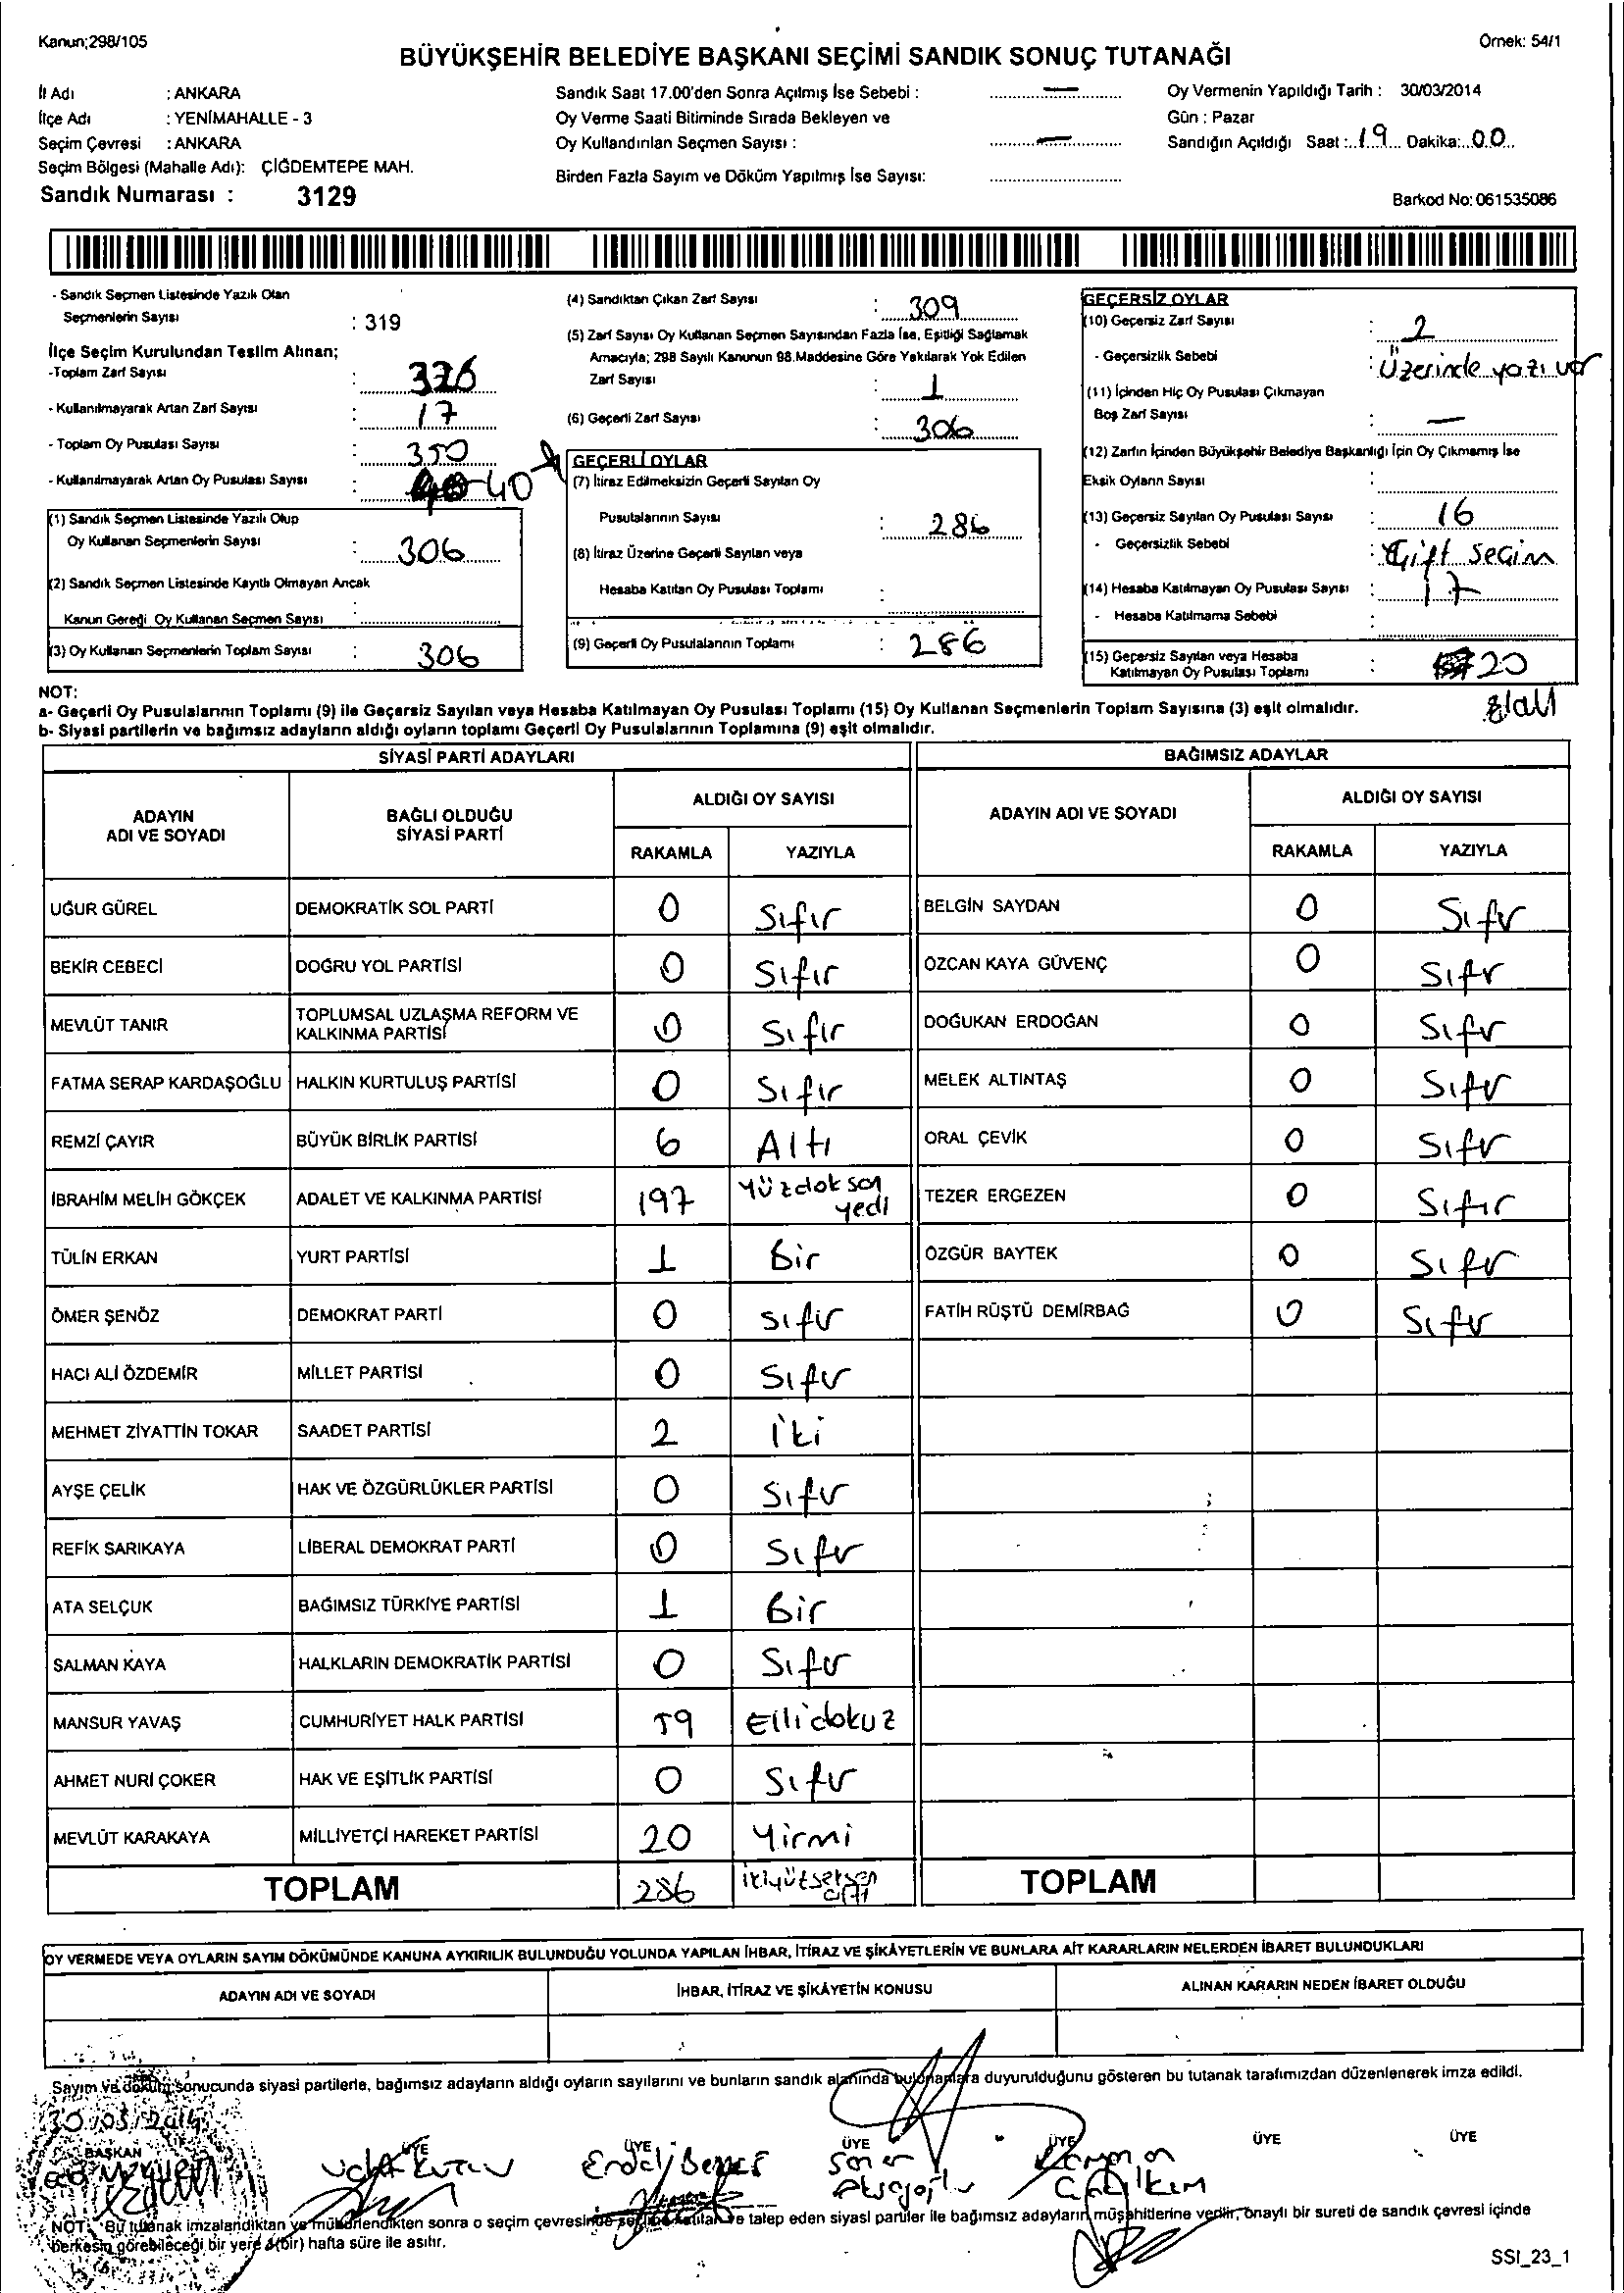 Kanun;298/105
Örnek: 54/1
BÜYÜKŞEHİR BELEDİYE BAŞKANI SEÇİMİ SANDIK SONUÇ TUTANAĞI
İl Adı : ANKARA
İlçe Adı : YENİMAHALLE - 3
Seçim Çevresi : ANKARA
Seçim Bölgesi (Mahalle Adı): ÇİĞDEMTEPE MAH.
Sandık Numarası : 3129
Sandık Saat 17.00'den Sonra Açılmış İse Sebebi : —
Oy Verme Saati Bitiminde Sırada Bekleyen ve
Oy Kullandırılan Seçmen Sayısı : —
Birden Fazla Sayım ve Döküm Yapılmış İse Sayısı:
Oy Vermenin Yapıldığı Tarih : 30/03/2014
Gün : Pazar
Sandığın Açıldığı Saat : 19 Dakika: 00
Barkod No: 061535086
- Sandık Seçmen Listesinde Yazılı Olan
Seçmenlerin Sayısı : 319
İlçe Seçim Kurulundan Teslim Alınan;
-Toplam Zarf Sayısı : 326
- Kullanılmayarak Artan Zarf Sayısı : 17
- Toplam Oy Pusulası Sayısı : 350
- Kullanılmayarak Artan Oy Pusulası Sayısı : 40
(1) Sandık Seçmen Listesinde Yazılı Olup
Oy Kullanan Seçmenlerin Sayısı : 306
(2) Sandık Seçmen Listesinde Kayıtlı Olmayan Ancak
Kanun Gereği Oy Kullanan Seçmen Sayısı :
(3) Oy Kullanan Seçmenlerin Toplam Sayısı : 306
(4) Sandıktan Çıkan Zarf Sayısı : 309
(5) Zarf Sayısı Oy Kullanan Seçmen Sayısından Fazla İse, Eşitliği Sağlamak
Amacıyla; 298 Sayılı Kanunun 98.Maddesine Göre Yakılarak Yok Edilen
Zarf Sayısı : 1
(6) Geçerli Zarf Sayısı : 306
GEÇERLİ OYLAR
(7) İtiraz Edilmeksizin Geçerli Sayılan Oy
Pusulalarının Sayısı : 286
(8) İtiraz Üzerine Geçerli Sayılan veya
Hesaba Katılan Oy Pusulası Toplamı :
(9) Geçerli Oy Pusulalarının Toplamı : 286
GEÇERSİZ OYLAR
(10) Geçersiz Zarf Sayısı : 2
- Geçersizlik Sebebi : Üzerinde yazı var
(11) İçinden Hiç Oy Pusulası Çıkmayan
Boş Zarf Sayısı : —
(12) Zarfın İçinden Büyükşehir Belediye Başkanlığı İçin Oy Çıkmamış İse
Eksik Oyların Sayısı :
(13) Geçersiz Sayılan Oy Pusulası Sayısı : 16
- Geçersizlik Sebebi : Çift seçim
(14) Hesaba Katılmayan Oy Pusulası Sayısı : 17
- Hesaba Katılmama Sebebi :
(15) Geçersiz Sayılan veya Hesaba
Katılmayan Oy Pusulası Toplamı : 20
NOT:
a- Geçerli Oy Pusulalarının Toplamı (9) ile Geçersiz Sayılan veya Hesaba Katılmayan Oy Pusulası Toplamı (15) Oy Kullanan Seçmenlerin Toplam Sayısına (3) eşit olmalıdır.
b- Siyasi partilerin ve bağımsız adayların aldığı oyların toplamı Geçerli Oy Pusulalarının Toplamına (9) eşit olmalıdır.
SİYASİ PARTİ ADAYLARI
BAĞIMSIZ ADAYLAR
ADAYIN ADI VE SOYADI
BAĞLI OLDUĞU SİYASİ PARTİ
ALDIĞI OY SAYISI
RAKAMLA YAZIYLA
ADAYIN ADI VE SOYADI
ALDIĞI OY SAYISI
RAKAMLA YAZIYLA
UĞUR GÜREL DEMOKRATİK SOL PARTİ 0 Sıfır BELGİN SAYDAN 0 Sıfır
BEKİR CEBECİ DOĞRU YOL PARTİSİ 0 Sıfır ÖZCAN KAYA GÜVENÇ 0 Sıfır
MEVLÜT TANIR TOPLUMSAL UZLAŞMA REFORM VE KALKINMA PARTİSİ 0 Sıfır DOĞUKAN ERDOĞAN 0 Sıfır
FATMA SERAP KARDAŞOĞLU HALKIN KURTULUŞ PARTİSİ 0 Sıfır MELEK ALTINTAŞ 0 Sıfır
REMZİ ÇAYIR BÜYÜK BİRLİK PARTİSİ 6 Altı ORAL ÇEVİK 0 Sıfır
İBRAHİM MELİH GÖKÇEK ADALET VE KALKINMA PARTİSİ 197 Yüzdoksan yedi TEZER ERGEZEN 0 Sıfır
TÜLİN ERKAN YURT PARTİSİ 1 Bir ÖZGÜR BAYTEK 0 Sıfır
ÖMER ŞENÖZ DEMOKRAT PARTİ 0 Sıfır FATİH RÜŞTÜ DEMİRBAĞ 0 Sıfır
HACI ALİ ÖZDEMİR MİLLET PARTİSİ 0 Sıfır
MEHMET ZİYATTİN TOKAR SAADET PARTİSİ 2 İki
AYŞE ÇELİK HAK VE ÖZGÜRLÜKLER PARTİSİ 0 Sıfır
REFİK SARIKAYA LİBERAL DEMOKRAT PARTİ 0 Sıfır
ATA SELÇUK BAĞIMSIZ TÜRKİYE PARTİSİ 1 Bir
SALMAN KAYA HALKLARIN DEMOKRATİK PARTİSİ 0 Sıfır
MANSUR YAVAŞ CUMHURİYET HALK PARTİSİ 59 Ellidokuz
AHMET NURİ ÇOKER HAK VE EŞİTLİK PARTİSİ 0 Sıfır
MEVLÜT KARAKAYA MİLLİYETÇİ HAREKET PARTİSİ 20 Yirmi
TOPLAM 286 ikiyüzseksen altı TOPLAM
OY VERMEDE VEYA OYLARIN SAYIM DÖKÜMÜNDE KANUNA AYKIRILIK BULUNDUĞU YOLUNDA YAPILAN İHBAR, İTİRAZ VE ŞİKÂYETLERİN VE BUNLARA AİT KARARLARIN NELERDEN İBARET BULUNDUKLARI
ADAYIN ADI VE SOYADI İHBAR, İTİRAZ VE ŞİKÂYETİN KONUSU ALINAN KARARIN NEDEN İBARET OLDUĞU
Sayım ve döküm sonucunda siyasi partilerle, bağımsız adayların aldığı oyların sayılarını ve bunların sandık alanında bulunanlara duyurulduğunu gösteren bu tutanak tarafımızdan düzenlenerek imza edildi.
30/03/2014
BAŞKAN ÜYE ÜYE ÜYE ÜYE ÜYE ÜYE
NOT: Bu tutanak imzalandıktan ve mühürlendikten sonra o seçim çevresinde seçime katılan ve talep eden siyasi partiler ile bağımsız adayların müşahitlerine verilir, onaylı bir sureti de sandık çevresi içinde
herkesin görebileceği bir yere (bir) hafta süre ile asılır.
SSI_23_1